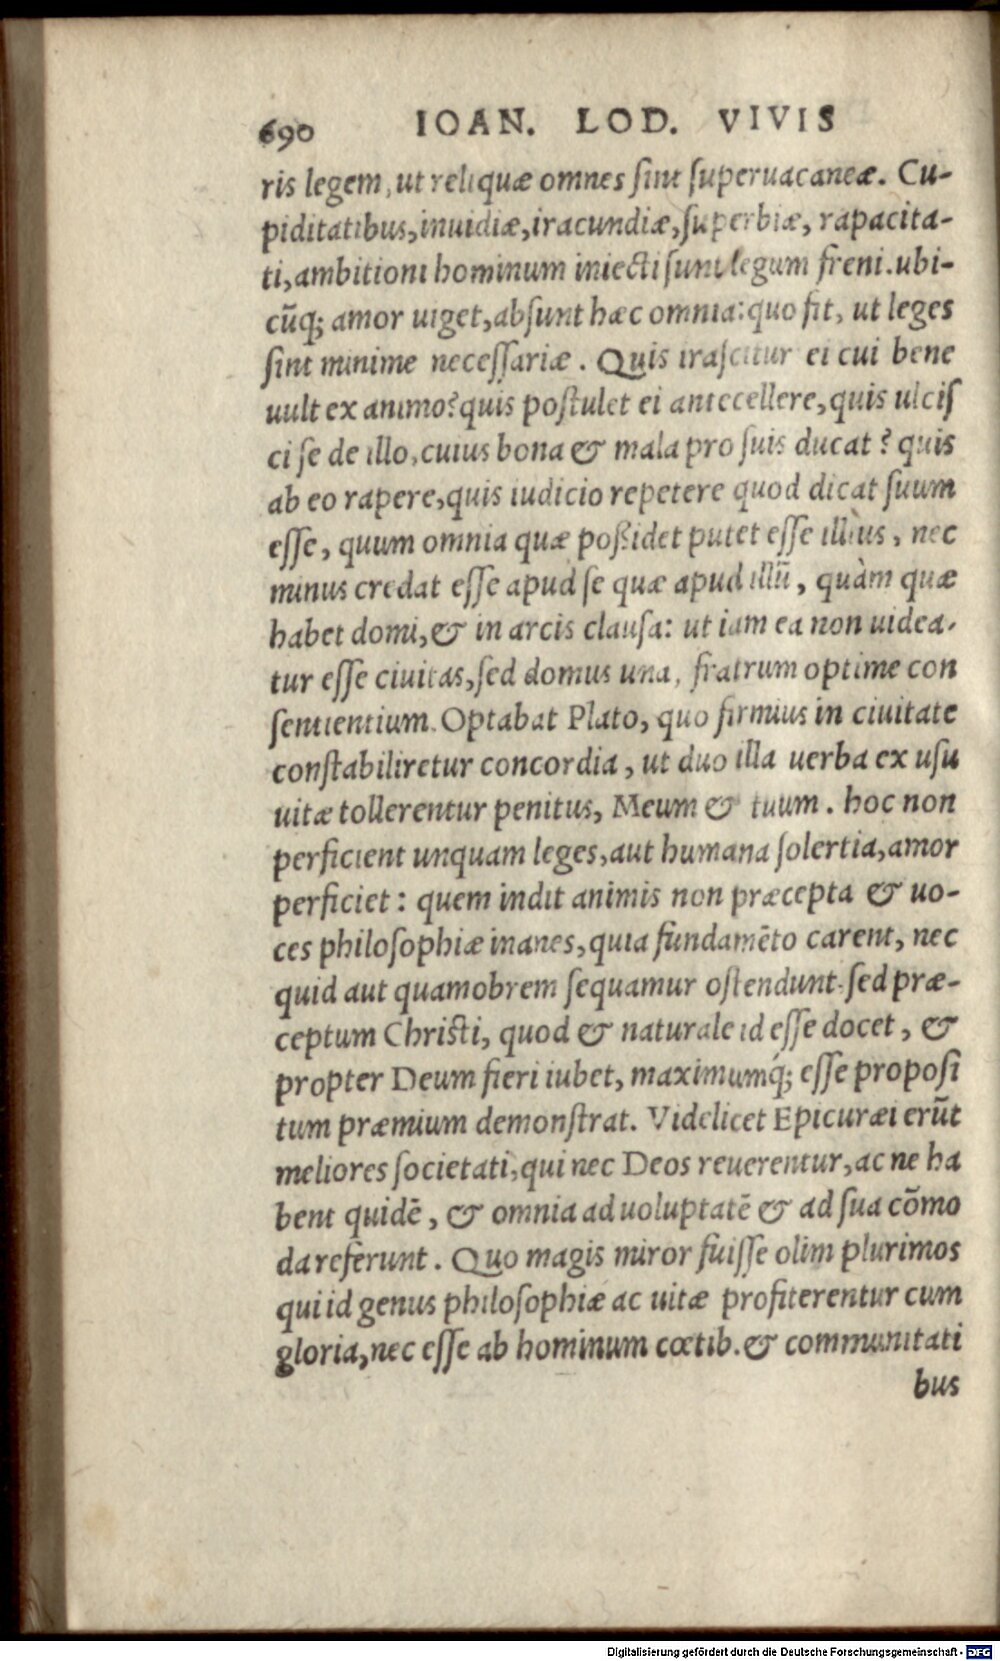 690 IOAN. LOD. VIVIS
ris legem, ut reliquæ omnes sint superuacaneæ. Cu-
piditatibus, inuidiæ, iracundiæ, superbiæ, rapacita-
ti, ambitioni hominum iniecti sunt legum freni. ubi-
cũq; amor uiget, absunt hæc omnia: quo fit, ut leges
sint minime necessariæ. Quis irascitur ei cui bene
uult ex animo? quis postulet ei antecellere, quis ulcis
ci se de illo, cuius bona & mala pro suis ducat? quis
ab eo rapere, quis iudicio repetere quod dicat suum
esse, quum omnia quæ poßidet putet esse illius, nec
minus credat esse apud se quæ apud illũ, quàm quæ
habet domi, & in arcis clausa: ut iam ea non uidea-
tur esse ciuitas, sed domus una, fratrum optime con
sentientium. Optabat Plato, quo firmius in ciuitate
constabiliretur concordia, ut duo illa uerba ex usu
uitæ tollerentur penitus, Meum & tuum. hoc non
perficient unquam leges, aut humana solertia, amor
perficiet: quem indit animis non præcepta & uo-
ces philosophiæ inanes, quia fundamẽto carent, nec
quid aut quamobrem sequamur ostendunt. sed præ-
ceptum Christi, quod & naturale id esse docet, &
propter Deum fieri iubet, maximumq́; esse proposi
tum præmium demonstrat. Videlicet Epicuræi erũt
meliores societati, qui nec Deos reuerentur, ac ne ha
bent quidẽ, & omnia ad uoluptatẽ & ad sua cõmo
da referunt. Quo magis miror fuisse olim plurimos
qui id genus philosophiæ ac uitæ profiterentur cum
gloria, nec esse ab hominum cœtib. & communitati
bus
Digitalisierung gefördert durch die Deutsche Forschungsgemeinschaft - DFG